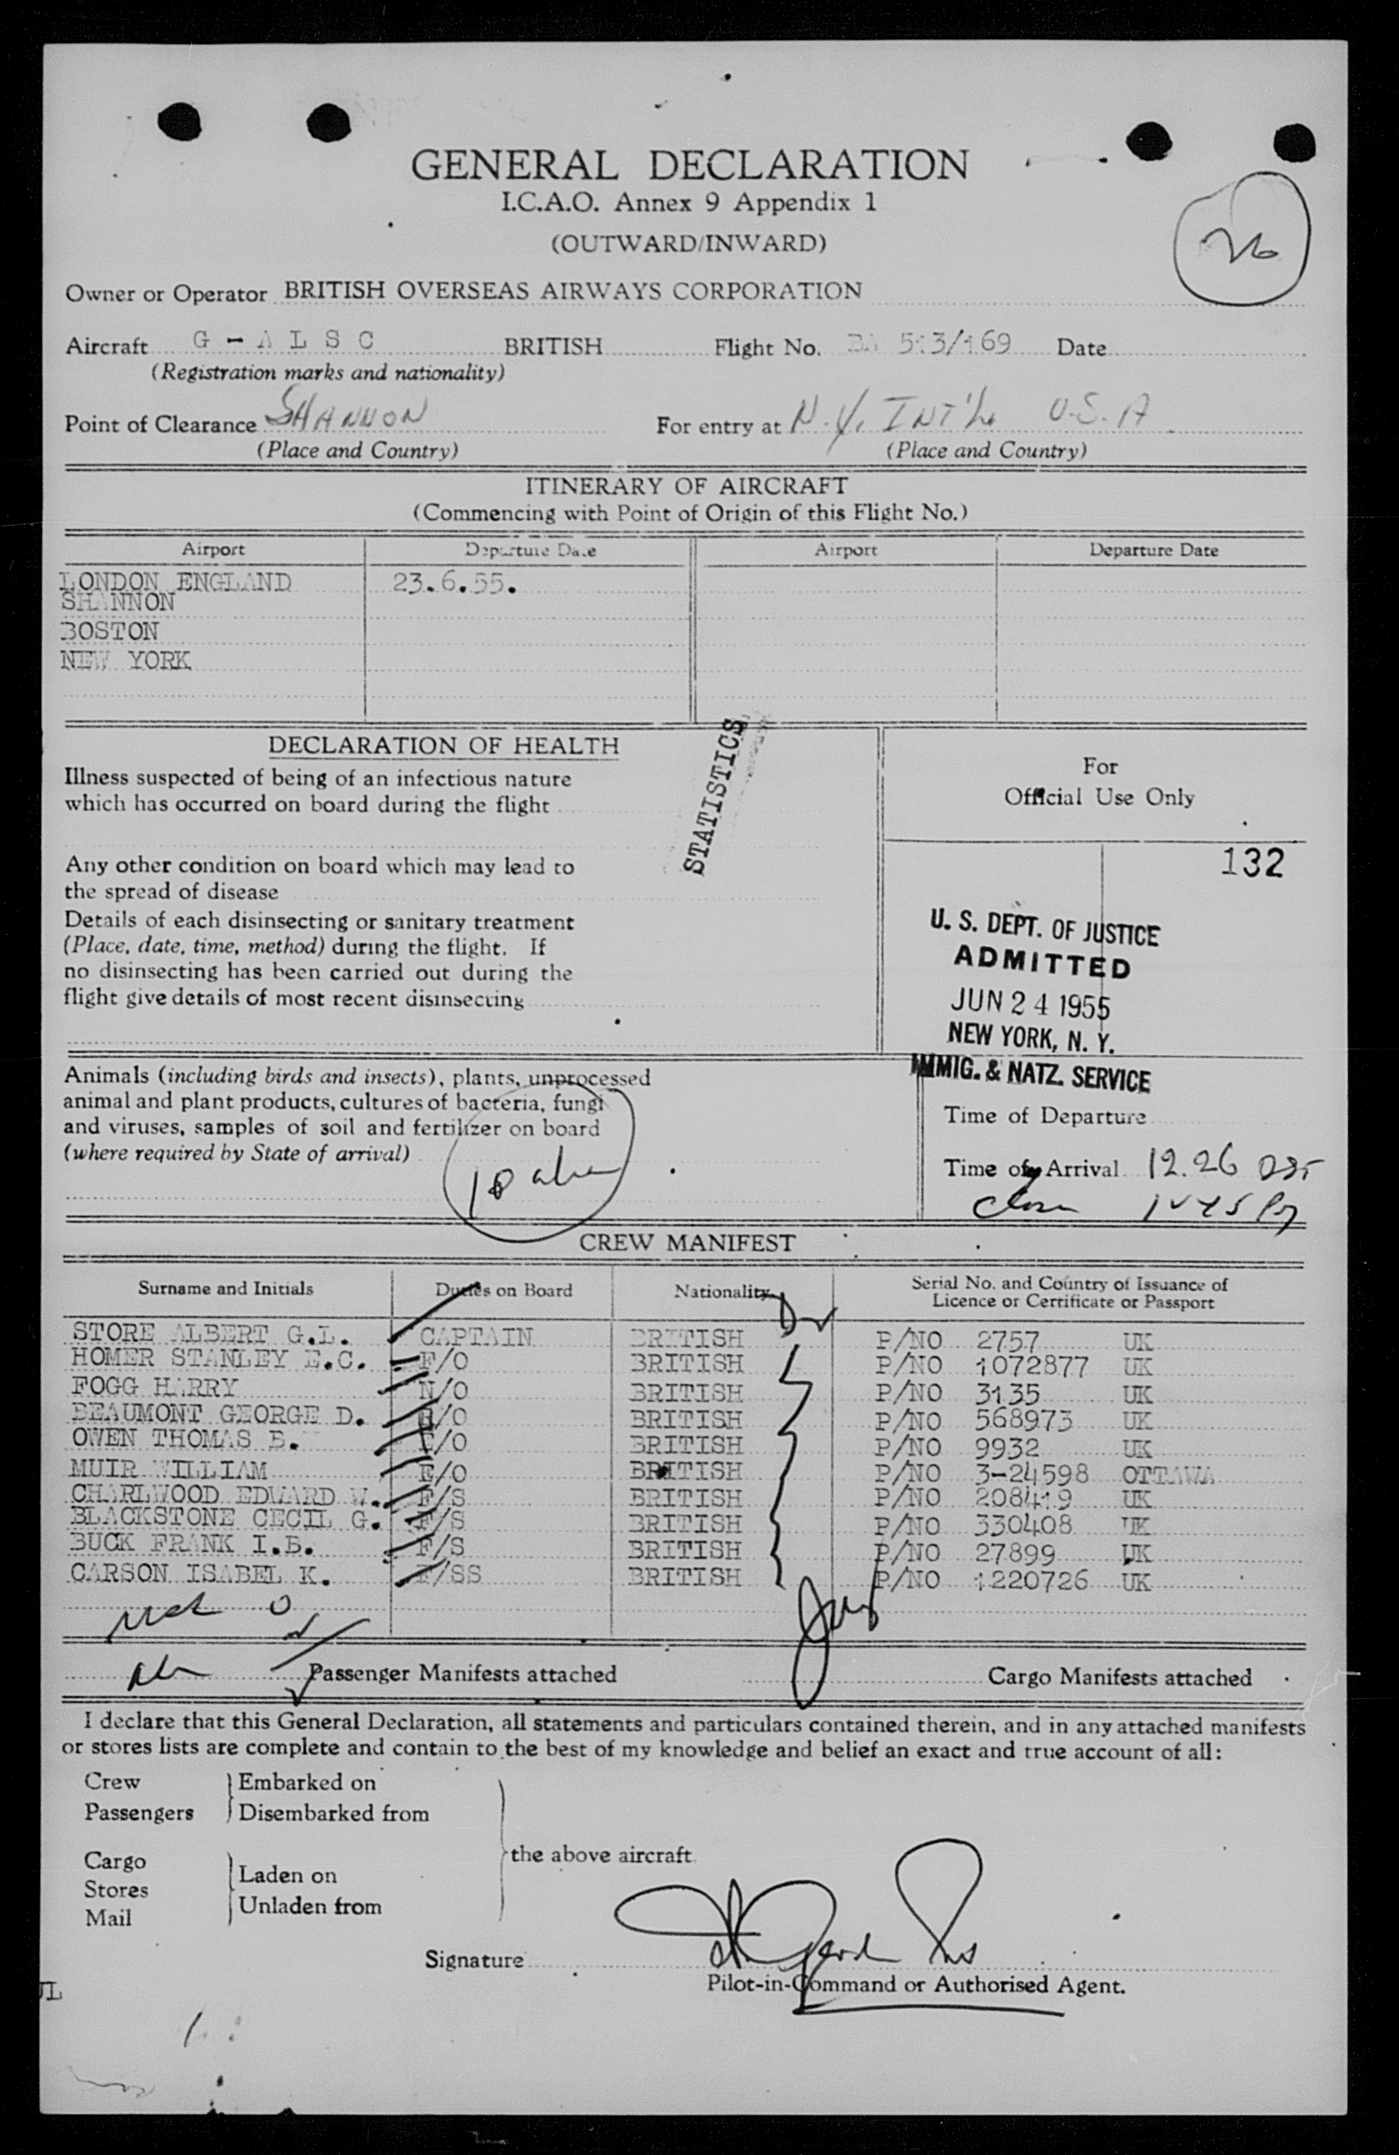 GENERAL DECLARATION
I.C.A.O. Annex 9 Appendix 1
(OUTWARD/INWARD)
26
Owner or Operator BRITISH OVERSEAS AIRWAYS CORPORATION
Aircraft G - A L S C BRITISH Flight No. BA 513/169 Date
(Registration marks and nationality)
Point of Clearance SHANNON For entry at N.Y. INT'L U.S.A
(Place and Country) (Place and Country)
ITINERARY OF AIRCRAFT
(Commencing with Point of Origin of this Flight No.)
Airport Departure Date Airport Departure Date
LONDON ENGLAND 23.6.55.
SHANNON
BOSTON
NEW YORK
STATISTICS
DECLARATION OF HEALTH
Illness suspected of being of an infectious nature
which has occurred on board during the flight
Any other condition on board which may lead to
the spread of disease
Details of each disinsecting or sanitary treatment
(Place, date, time, method) during the flight. If
no disinsecting has been carried out during the
flight give details of most recent disinsecting
For
Official Use Only
132
U. S. DEPT. OF JUSTICE
ADMITTED
JUN 24 1955
NEW YORK, N. Y.
IMMIG. & NATZ. SERVICE
Animals (including birds and insects), plants, unprocessed
animal and plant products, cultures of bacteria, fungi
and viruses, samples of soil and fertilizer on board
(where required by State of arrival)
18
Time of Departure
Time of Arrival 12.26
CREW MANIFEST
Surname and Initials Duties on Board Nationality Serial No. and Country of Issuance of
Licence or Certificate or Passport
STORE ALBERT G.L. CAPTAIN BRITISH P/NO 2757 UK
HOMER STANLEY E.C. F/O BRITISH P/NO 1072877 UK
FOGG HARRY N/O BRITISH P/NO 3135 UK
BEAUMONT GEORGE D. R/O BRITISH P/NO 568973 UK
OWEN THOMAS B. E/O BRITISH P/NO 9932 UK
MUIR WILLIAM E/O BRITISH P/NO 3-24598 OTTAWA
CHARLWOOD EDWARD W. F/S BRITISH P/NO 208419 UK
BLACKSTONE CECIL G. F/S BRITISH P/NO 330408 UK
BUCK FRANK I.B. F/S BRITISH P/NO 27899 UK
CARSON ISABEL K. F/SS BRITISH P/NO 1220726 UK
Passenger Manifests attached Cargo Manifests attached
I declare that this General Declaration, all statements and particulars contained therein, and in any attached manifests
or stores lists are complete and contain to the best of my knowledge and belief an exact and true account of all:
Crew Embarked on
Passengers Disembarked from
the above aircraft
Cargo Laden on
Stores
Mail Unladen from
Signature
Pilot-in-Command or Authorised Agent.